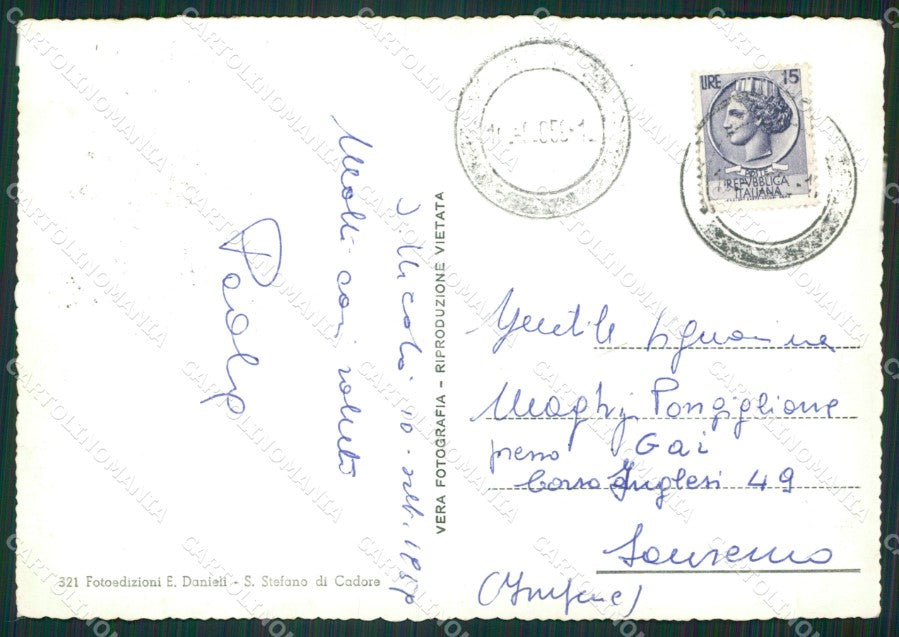 LIRE 15
REPVBBLICA
ITALIANA
10 - sett. 1959
Molti cari saluti
Paolo
VERA FOTOGRAFIA - RIPRODUZIONE VIETATA
Gentile Signorina
Maghy Pongiglione
presso Gai
Corso Inglesi 49
Sanremo
(Imperia)
321 Fotoedizioni E. Danieli - S. Stefano di Cadore
CARTOLINOMANIA